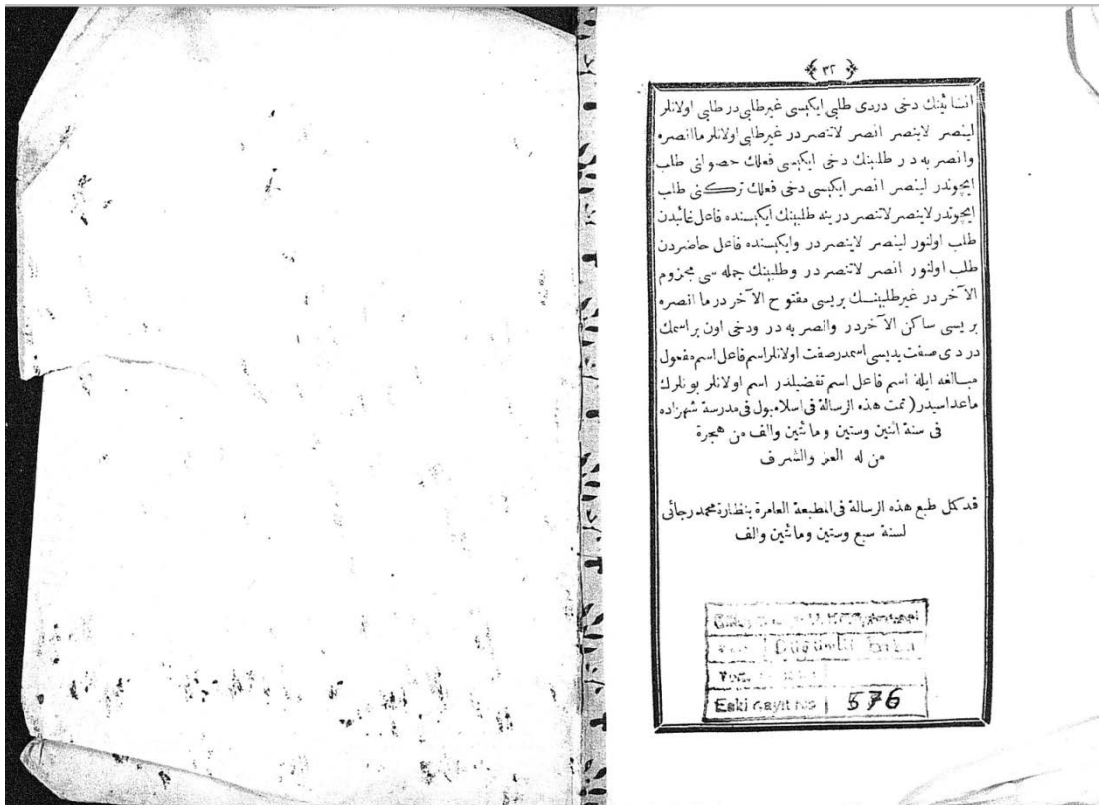 ٣٢
انشائينك دخی دردی طلبی ایکیسی غیرطلبی در طلبی اولانلر
لینصر لاینصر انصر لاتنصر در غیرطلبی اولانلر ماانصره
وانصر به در طلبینك دخی ایکیسی فعلك حصولنی طلب
ایچوندر لینصر انصر ایکیسی دخی فعلك ترکنی طلب
ایچوندر لاینصر لاتنصر در ینه طلبینك ایکیسنده فاعل غائبدن
طلب اولنور لینصر لاینصر در وایکیسنده فاعل حاضردن
طلب اولنور انصر لاتنصر در وطلبینك جمله سی مجزوم
الآخر در غیرطلبینك بریسی مفتوح الآخر در ما انصره
بریسی ساکن الآخردر وانصر به در ودخی اون بر اسمك
دردی صفت یدیسی اسمدر صفت اولانلر اسم فاعل اسم مفعول
مبالغه ایله اسم فاعل اسم تفضیلدر اسم اولانلر بونلرك
ماعداسیدر (تمت هذه الرسالة فی اسلامبول فی مدرسة شهزاده
فی سنة اثنین وستین ومائتین والف من هجرة
من له العز والشرف
قد کمل طبع هذه الرسالة فی المطبعة العامرة بنظارة محمد رجائی
لسنة سبع وستین ومائتین والف
Düğümlü Baba
Eski Kayıt No 576